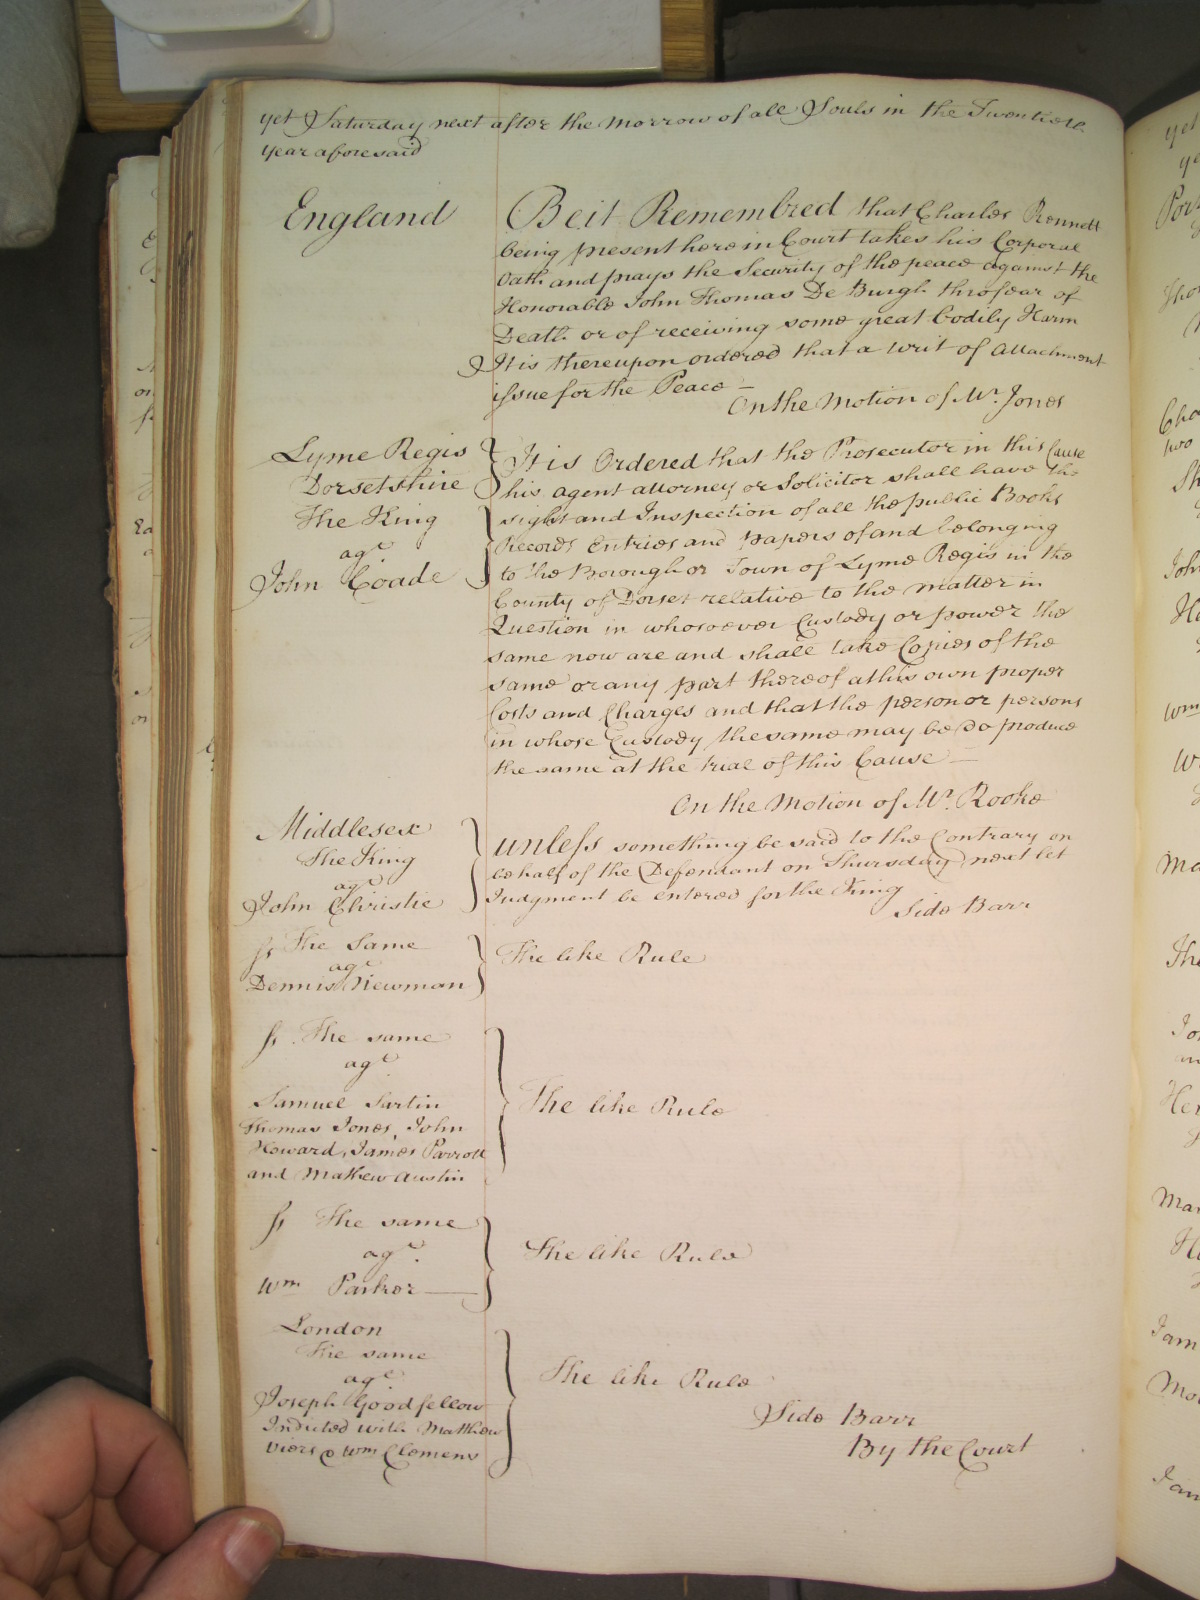 yet Saturday next after the Morrow of all Souls in the Twentieth
year aforesaid
England
Be it Remembred that Charles Rennett
being present here in Court takes his Corporal
Oath and prays the Security of the peace against the
Honorable John Thomas De Burgh thro fear of
Death or of receiving some great bodily Harm
It is thereupon ordered that a writ of Attachment
issue for the Peace —
On the Motion of Mr. Jones
Lyme Regis
Dorsetshire
The King
agt
John Coade
It is Ordered that the Prosecutor in this Cause
his agent attorney or Solicitor shall have the
sight and Inspection of all the public Books
Records Entries and papers of and belonging
to the Borough or Town of Lyme Regis in the
County of Dorset relative to the matter in
Question in whosoever Custody or power the
same now are and shall take Copies of the
same or any part thereof at his own proper
Costs and Charges and that the person or persons
in whose Custody the same may be Do produce
the same at the trial of this Cause —
On the Motion of Mr. Rooke
Middlesex
The King
agt
John Christie
Unless something be said to the Contrary on
behalf of the Defendant on Thursday next let
Judgment be entered for the King
Side Barr
ss The Same
agt
Dennis Newman
The like Rule
ss The same
agt
Samuel Sartin
Thomas Jones, John
Howard, James Parrott
and Mathew Austin
The like Rule
ss The same
agt
Wm Parker —
The like Rule
London
The same
agt
Joseph Goodfellow
Indicted with Matthew
Viers & Wm Clemens
The like Rule
Side Barr
By the Court